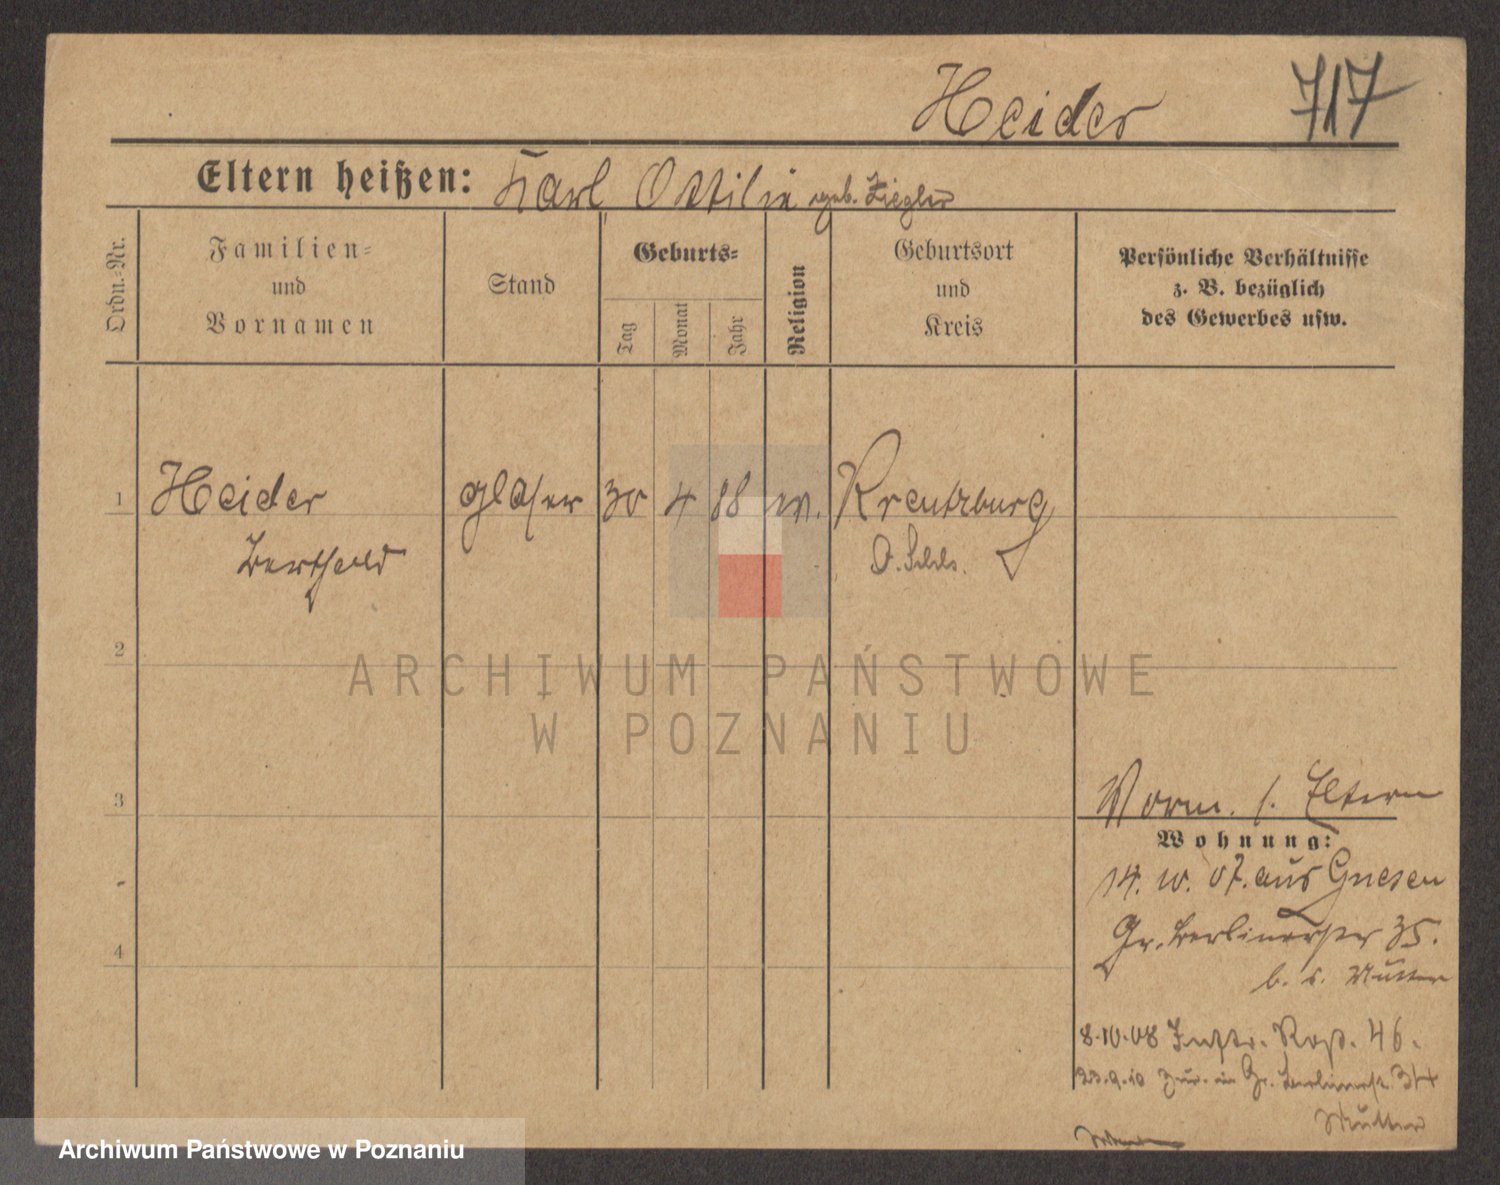 Heider 717
Eltern heißen: Karl Ottilie geb. Ziegler
Ordn.=Nr.
Familien=
und
Vornamen
Stand
Geburts=
Tag
Monat
Jahr
Religion
Geburtsort
und
Kreis
Persönliche Verhältnisse
z. B. bezüglich
des Gewerbes usw.
1 Heider Glaser 30 4 88 Kreutzburg
Berthold O. Schls.
2
ARCHIWUM PAŃSTWOWE
W POZNANIU
3
Vorm. s. Eltern
Wohnung:
14. 07. aus Gnesen
Gr. Berlinerstr 35.
b. s. Mutter
4
8.10.08 Inftr. Regt. 46.
23.9.10 zur. in Gr. Berlinerstr. 34
Mutter
Archiwum Państwowe w Poznaniu